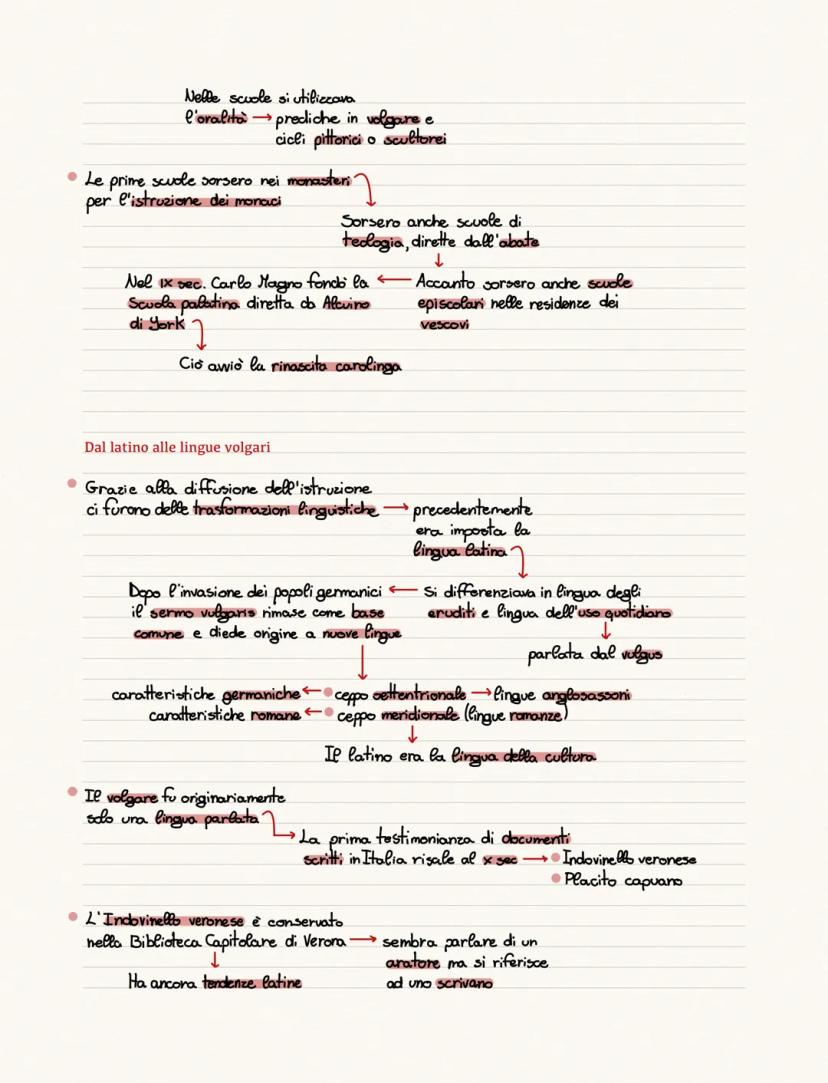 Nelle scuole si utilizzava
l'oralità → prediche in volgare e
cicli pittorici o scultorei
Le prime scuole sorsero nei monasteri
per l'istruzione dei monaci
Sorsero anche scuole di
teologia, dirette dall'abate
Nel IX sec. Carlo Magno fondò la ← Accanto sorsero anche scuole
Scuola palatina diretta da Alcuino episcolari nelle residenze dei
di York vescovi
Ciò avviò la rinascita carolinga
Dal latino alle lingue volgari
Grazie alla diffusione dell'istruzione
ci furono delle trasformazioni linguistiche → precedentemente
era imposta la
lingua latina
Dopo l'invasione dei popoli germanici ← Si differenziava in lingua degli
il sermo vulgaris rimase come base eruditi e lingua dell'uso quotidiano
comune e diede origine a nuove lingue
parlata dal vulgus
caratteristiche germaniche ← ceppo settentrionale → lingue anglosassoni
caratteristiche romane ← ceppo meridionale (lingue romanze)
Il latino era la lingua della cultura
Il volgare fu originariamente
solo una lingua parlata
La prima testimonianza di documenti
scritti in Italia risale al X sec → Indovinello veronese
Placito capuano
L'Indovinello veronese è conservato
nella Biblioteca Capitolare di Verona → sembra parlare di un
aratore ma si riferisce
Ha ancora tendenze latine ad uno scrivano